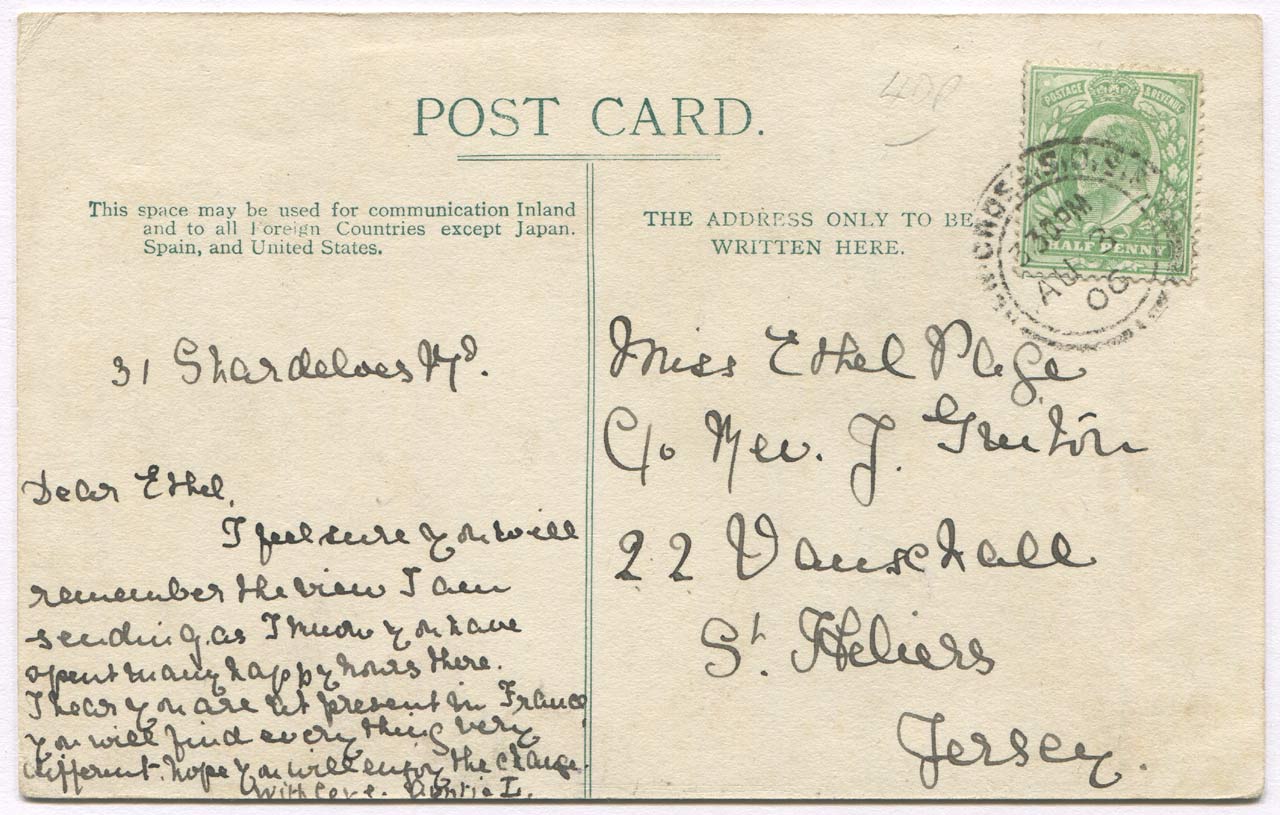 POST CARD.
This space may be used for communication Inland
and to all Foreign Countries except Japan.
Spain, and United States.
31 Shardeloes Rd.
Dear Ethel,
I feel sure you will
remember the view I am
sending as I know you have
spent many happy hours there.
I hear you are at present in France
you will find every thing very
different. hope you will enjoy the change.
With love. Auntie L.
THE ADDRESS ONLY TO BE
WRITTEN HERE.
POSTAGE & REVENUE
HALF PENNY
NEW CROSS S.O. S.E.
30PM
AU
06
Miss Ethel Page
C/o Rev. J.
22 Vauxhall
St. Heliers
Jersey.